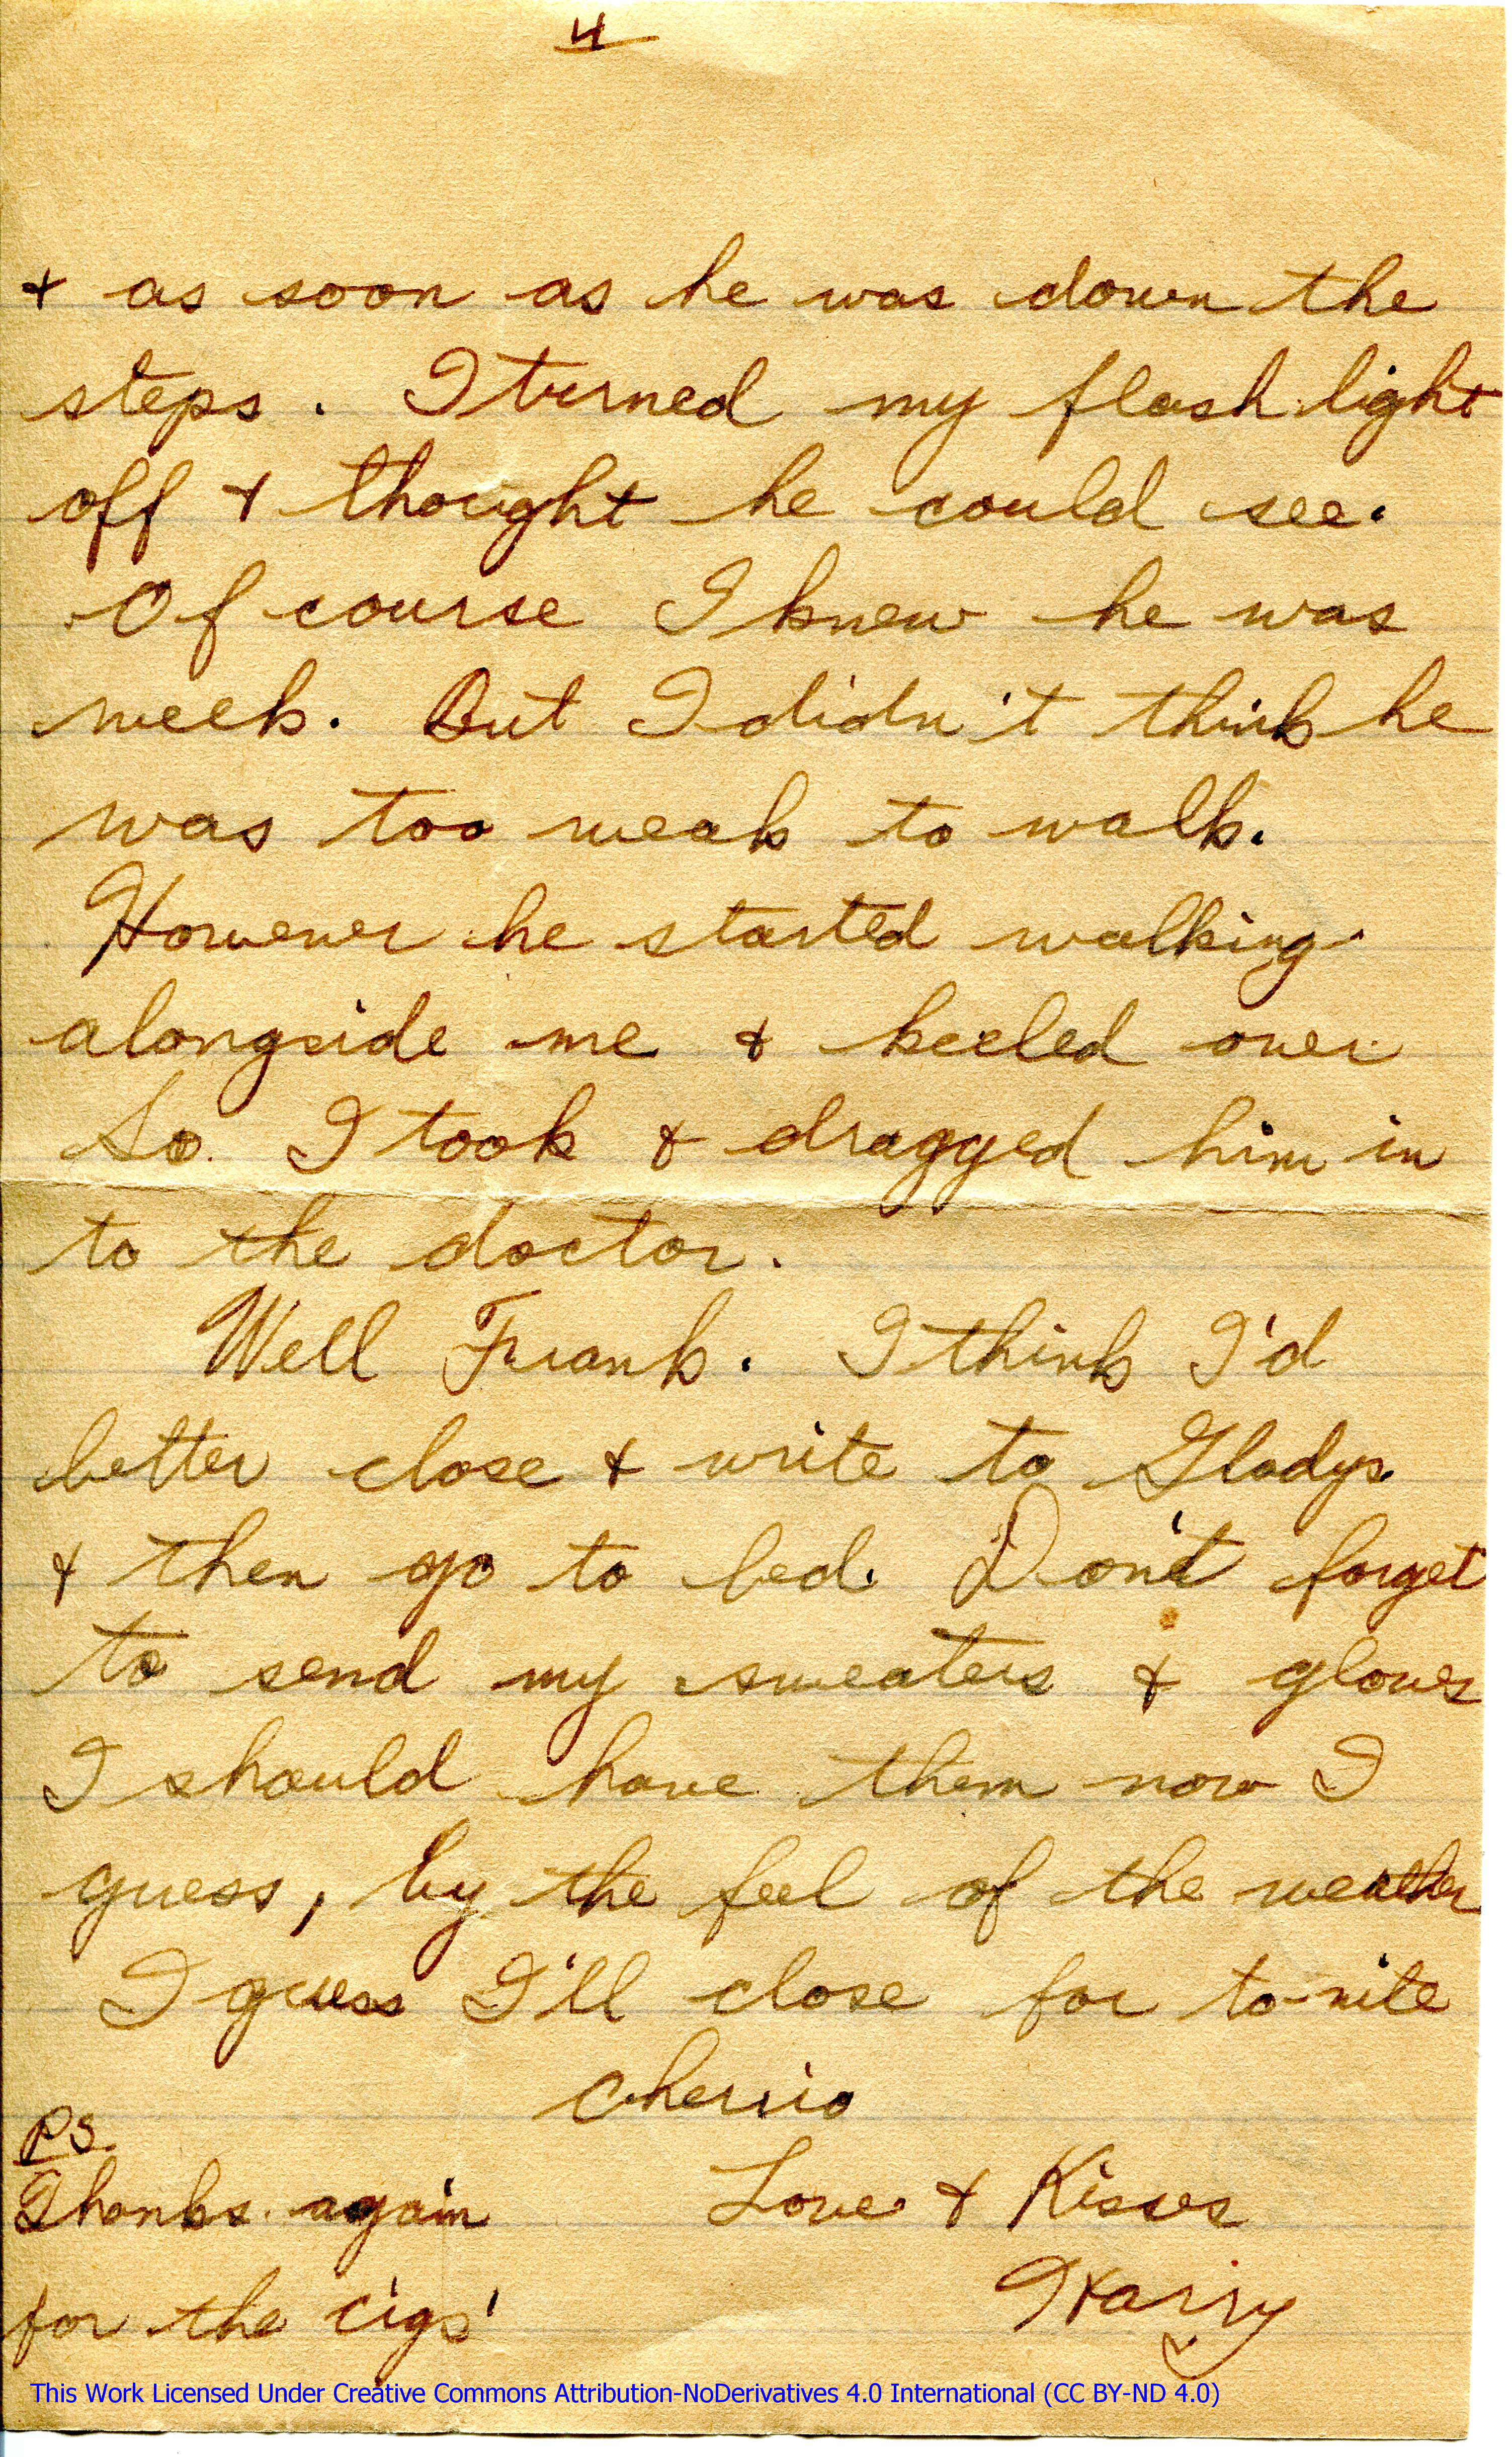 4
& as soon as he was down the
steps. I turned my flash light
off & thought he could see.
Of course I knew he was
week. But I didn't think he
was too weak to walk.
However he started walking
alongside me & keeled over
So I took & dragged him in
to the doctor.
Well Frank. I think I'd
better close & write to Gladys.
& then go to bed. Don't forget
to send my sweaters & gloves
I should have them now I
guess, by the feel of the weather
I guess I'll close for to-nite
Cherrio
Love & Kisses
Harry
PS.
Thanks again
for the cigs'
This Work Licensed Under Creative Commons Attribution-NoDerivatives 4.0 International (CC BY-ND 4.0)